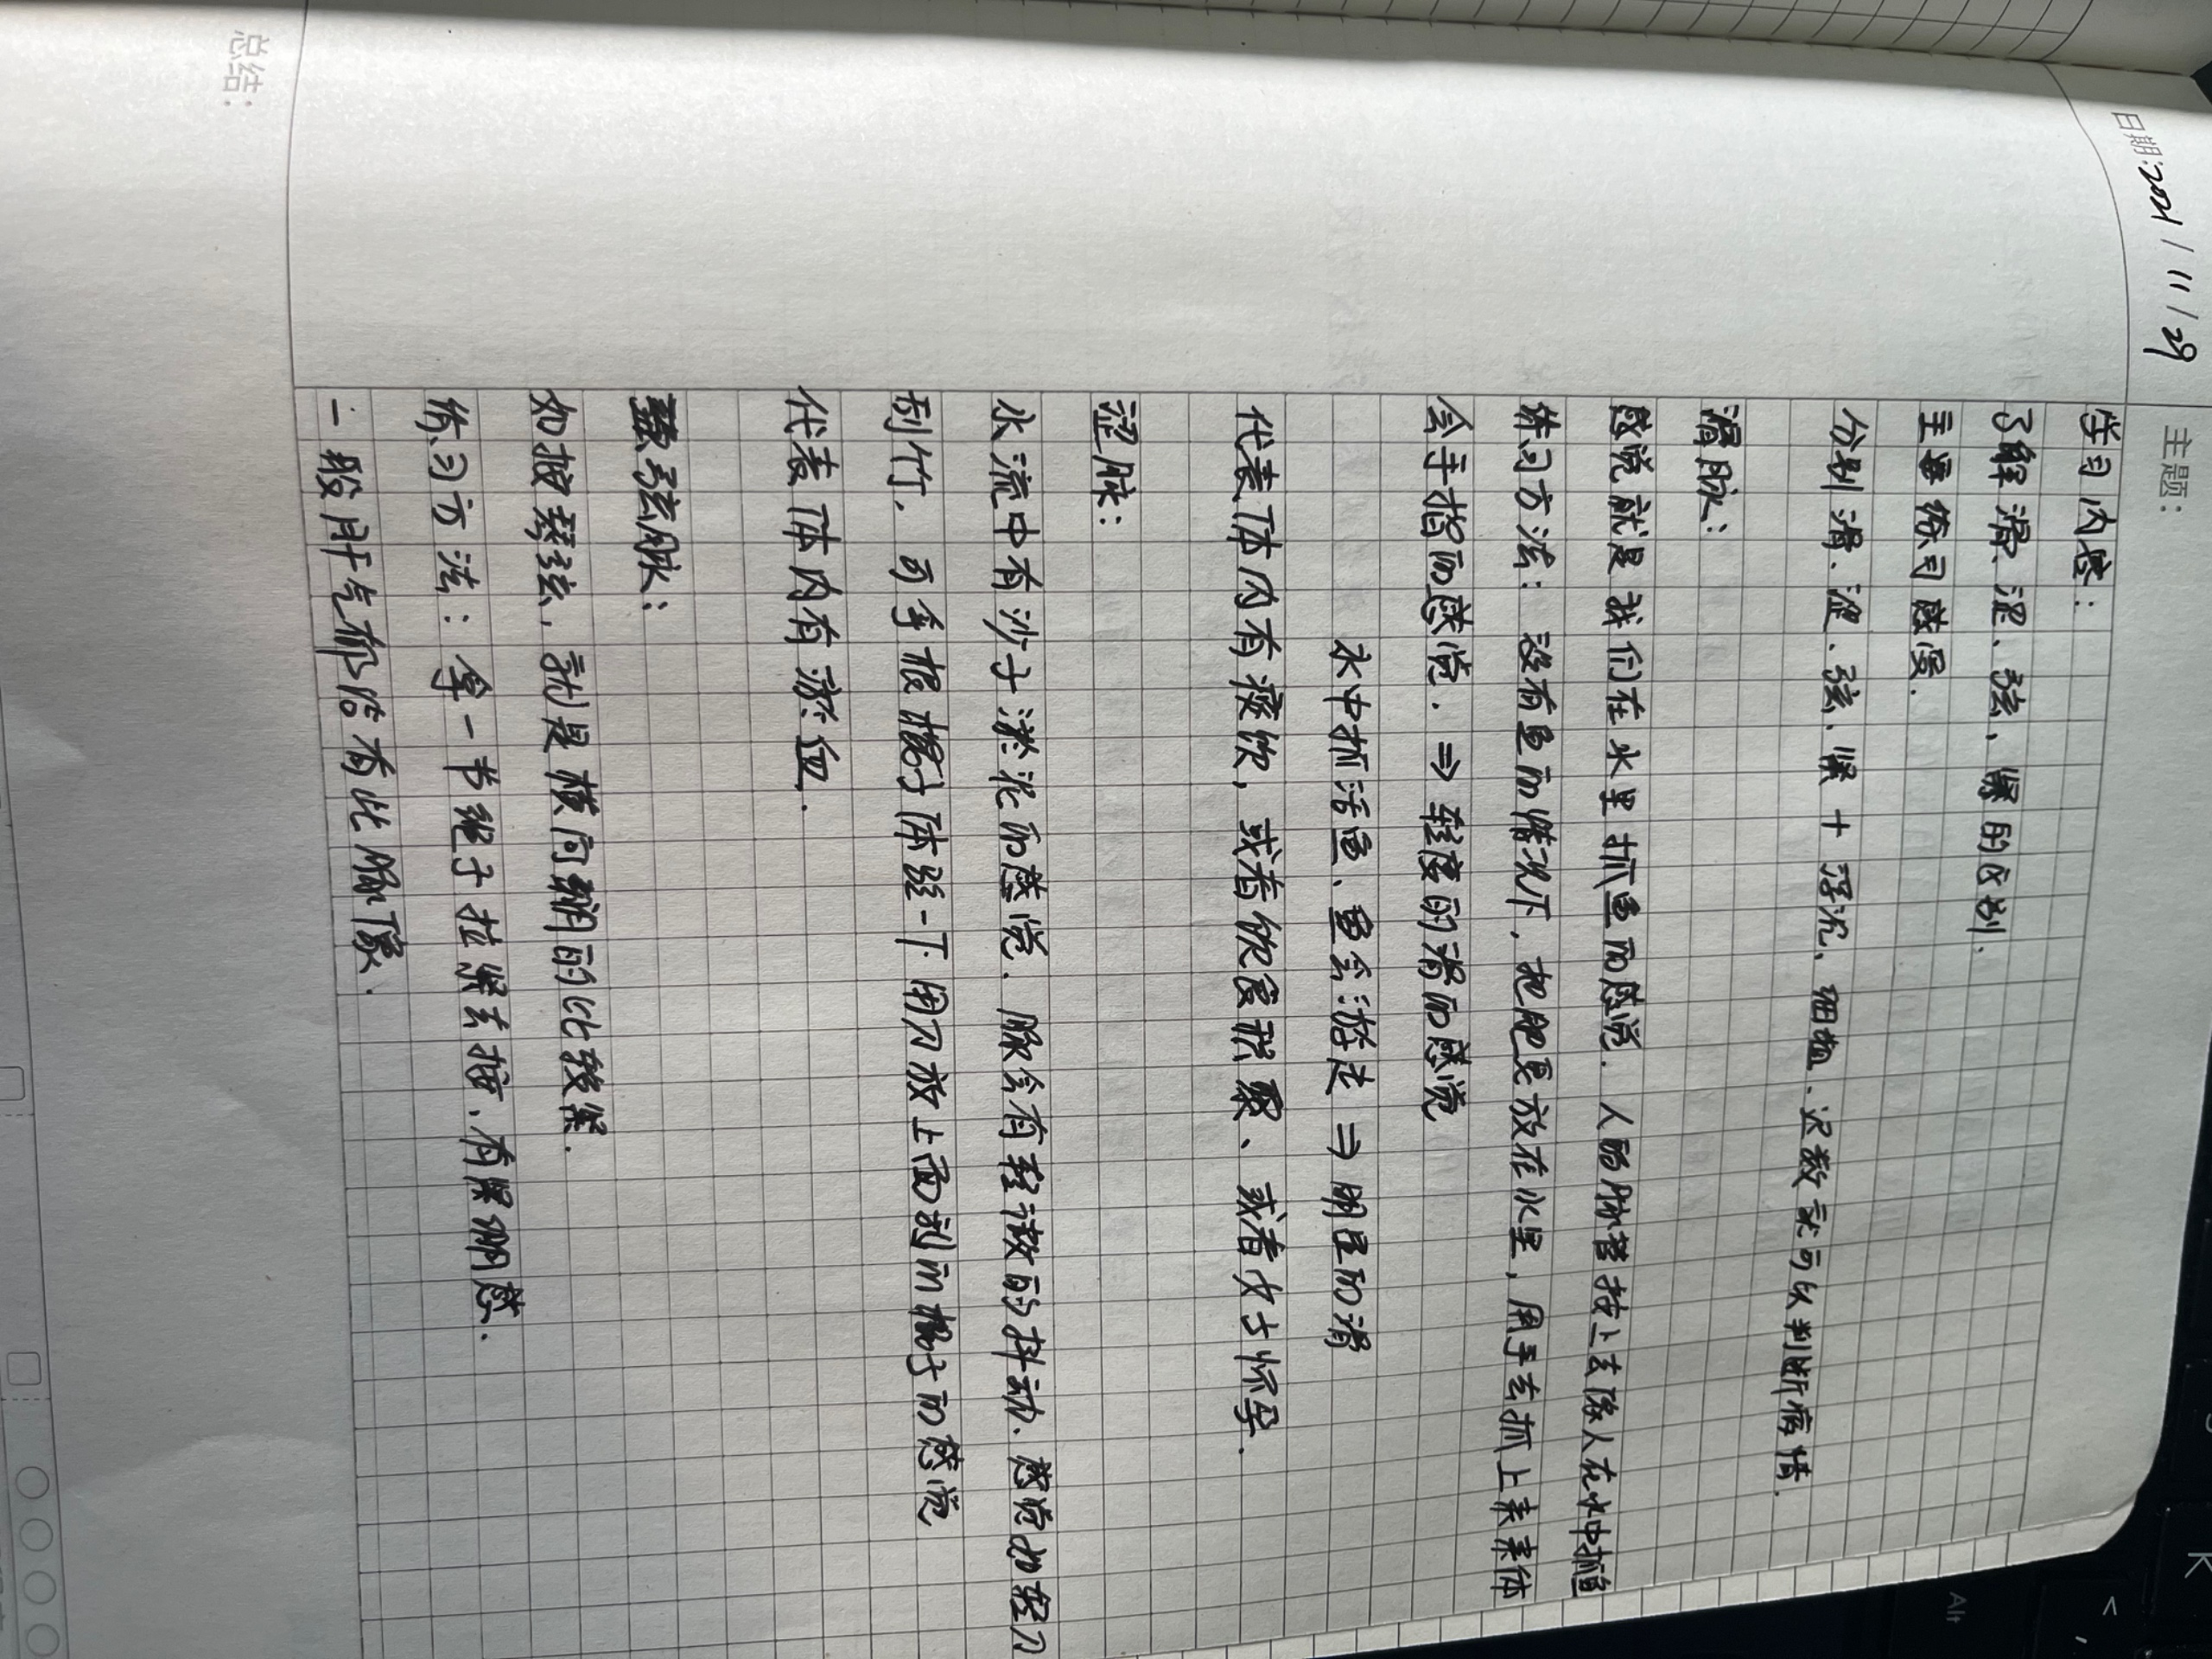 日期:2021/11/29 主题:
学习内容:
了解滑、涩、弦、紧的区别.
主要练习感受.
分别滑、涩、弦、紧 + 浮沉、细粗、迟数就可以判断病情.
滑脉:
感觉就是我们在水里抓鱼的感觉. 人的脉管按上去像人在水中抓鱼
练习方法: 没有鱼的情况下, 把肥皂放在水里, 用手去抓上来来体
会手指的感觉. ⇒ 轻度的滑的感觉
水中抓活鱼、鱼会游走 ⇒ 明显的滑
代表体内有痰饮, 或者饮食积聚、或者女子怀孕.
涩脉:
水流中有沙子淤泥的感觉. 脉会有轻微的抖动. 感觉如轻刀
刮竹, 可手根 体验一下 用刀放上面刮的 的感觉
代表体内有瘀血.
弦脉:
如按琴弦, 就是横向绷的比较紧.
练习方法: 拿一节绳子拉紧去按, 有紧绷感.
一般肝气郁结有此脉像.
总结: